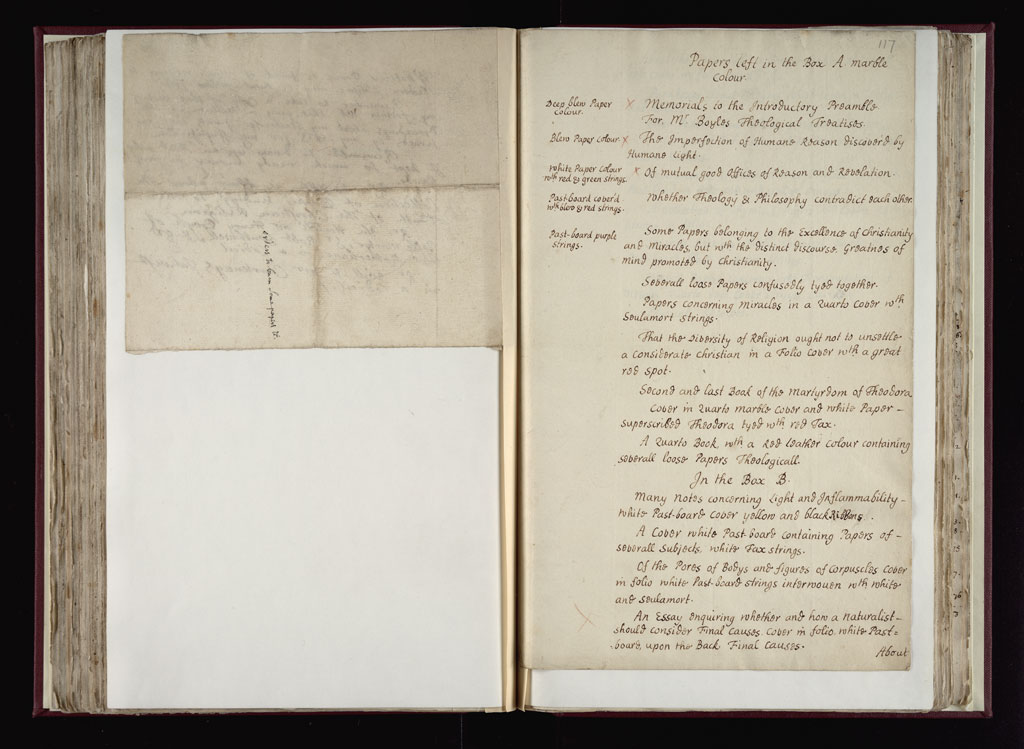 117
Papers left in the Box A marble
Colour.
Deep blew Paper
colour.
x Memorials to the Introductory Preamble
For Mr Boyles Theological Treatises.
Blew Paper colour x The Imperfection of Humane Reason discover'd by
Humane Light.
White Paper Colour
wth red & green strings.
x Of mutual good Offices of Reason and Revelation.
Past-board cover'd
wth blew & red strings.
Whether Theology & Philosophy contradict each other
Past-board purple
strings.
Some Papers belonging to the Excellence of Christianity
and Miracles, but wth the distinct discourse, Greatnes of
mind promoted by Christianity.
Severall loose Papers confusedly tyed together.
Papers concerning Miracles in a Quarto Cover wth
feulamort strings.
That the Diversity of Religion ought not to unsettle
a Considerate Christian in a Folio Cover wth a great
red spot.
Second and last Book of the Martyrdom of Theodora
Cover in Quarto marble Cover and white Paper –
superscribed Theodora tyed wth red Tax.
A Quarto Book wth a Red leather colour containing
severall loose Papers Theologicall.
In the Box B.
Many Notes concerning Light and Inflammability –
white Past-board Cover yellow and black Ribbons.
A Cover white Past-board containing Papers of –
severall Subjects, white Tax strings.
Of the Pores of Bodys and figures of Corpuscles Cover
in folio white Past-board strings interwouen wth white
and feulamort.
An Essay enquiring whether and how a Naturalist –
should consider Final Causes, Cover in folio, white Past=
board, upon the Back Final Causes.
About